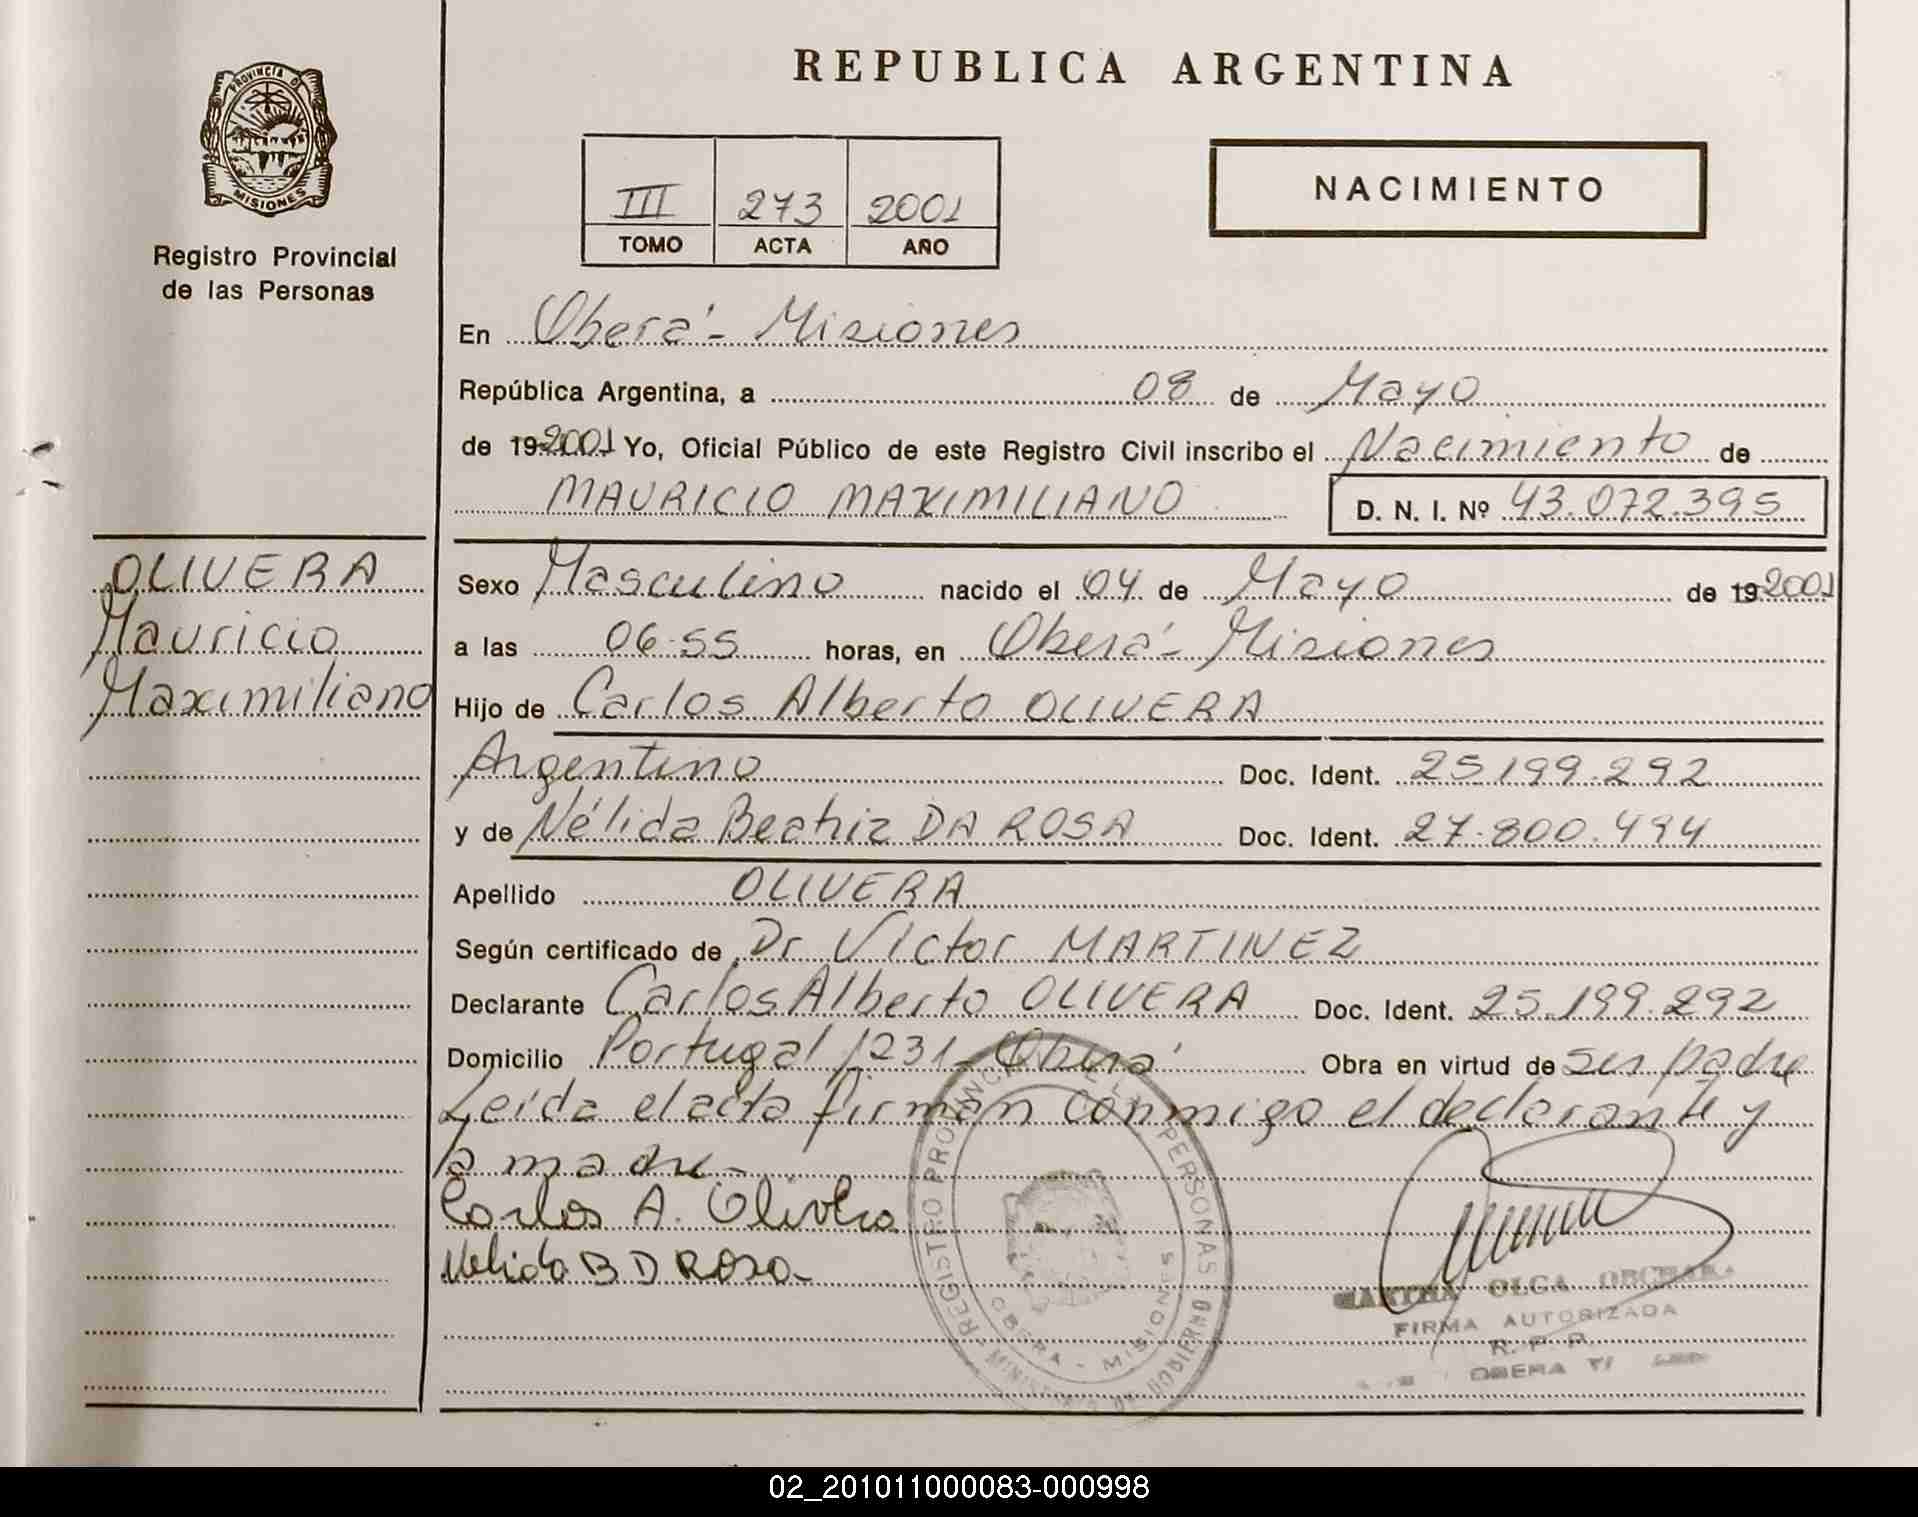 PROVINCIA D
MISIONES
Registro Provincial
de las Personas
OLIVERA
Mauricio
Maximiliano
REPUBLICA ARGENTINA
III 273 2001
TOMO ACTA AÑO
NACIMIENTO
En Oberá - Misiones
República Argentina, a 08 de Mayo
de 19 2001 Yo, Oficial Público de este Registro Civil inscribo el Nacimiento de
MAURICIO MAXIMILIANO D. N. I. Nº 43.072.395
Sexo Masculino nacido el 04 de Mayo de 19 2001
a las 06.55 horas, en Oberá - Misiones
Hijo de Carlos Alberto OLIVERA
Argentino Doc. Ident. 25.199.292
y de Nélida Beatriz DA ROSA Doc. Ident. 27.800.494
Apellido OLIVERA
Según certificado de Dr Victor MARTINEZ
Declarante Carlos Alberto OLIVERA Doc. Ident. 25.199.292
Domicilio Portugal 1231 - Oberá Obra en virtud de ser padre
Leída el acta firman conmigo el declarante y
la madre -
Carlos A. Olivera
Nelida B D Rosa
REGISTRO PROVINCIAL DE LAS PERSONAS
MINISTERIO DE GOBIERNO
OBERA - MISIONES
MARTHA OLGA
FIRMA AUTORIZADA
R. P. P.
OBERA
02_201011000083-000998